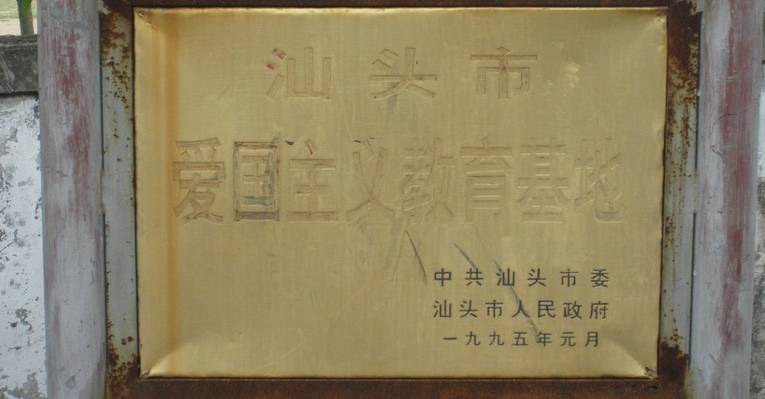 汕头市
爱国主义教育基地
中共汕头市委
汕头市人民政府
一九九五年元月